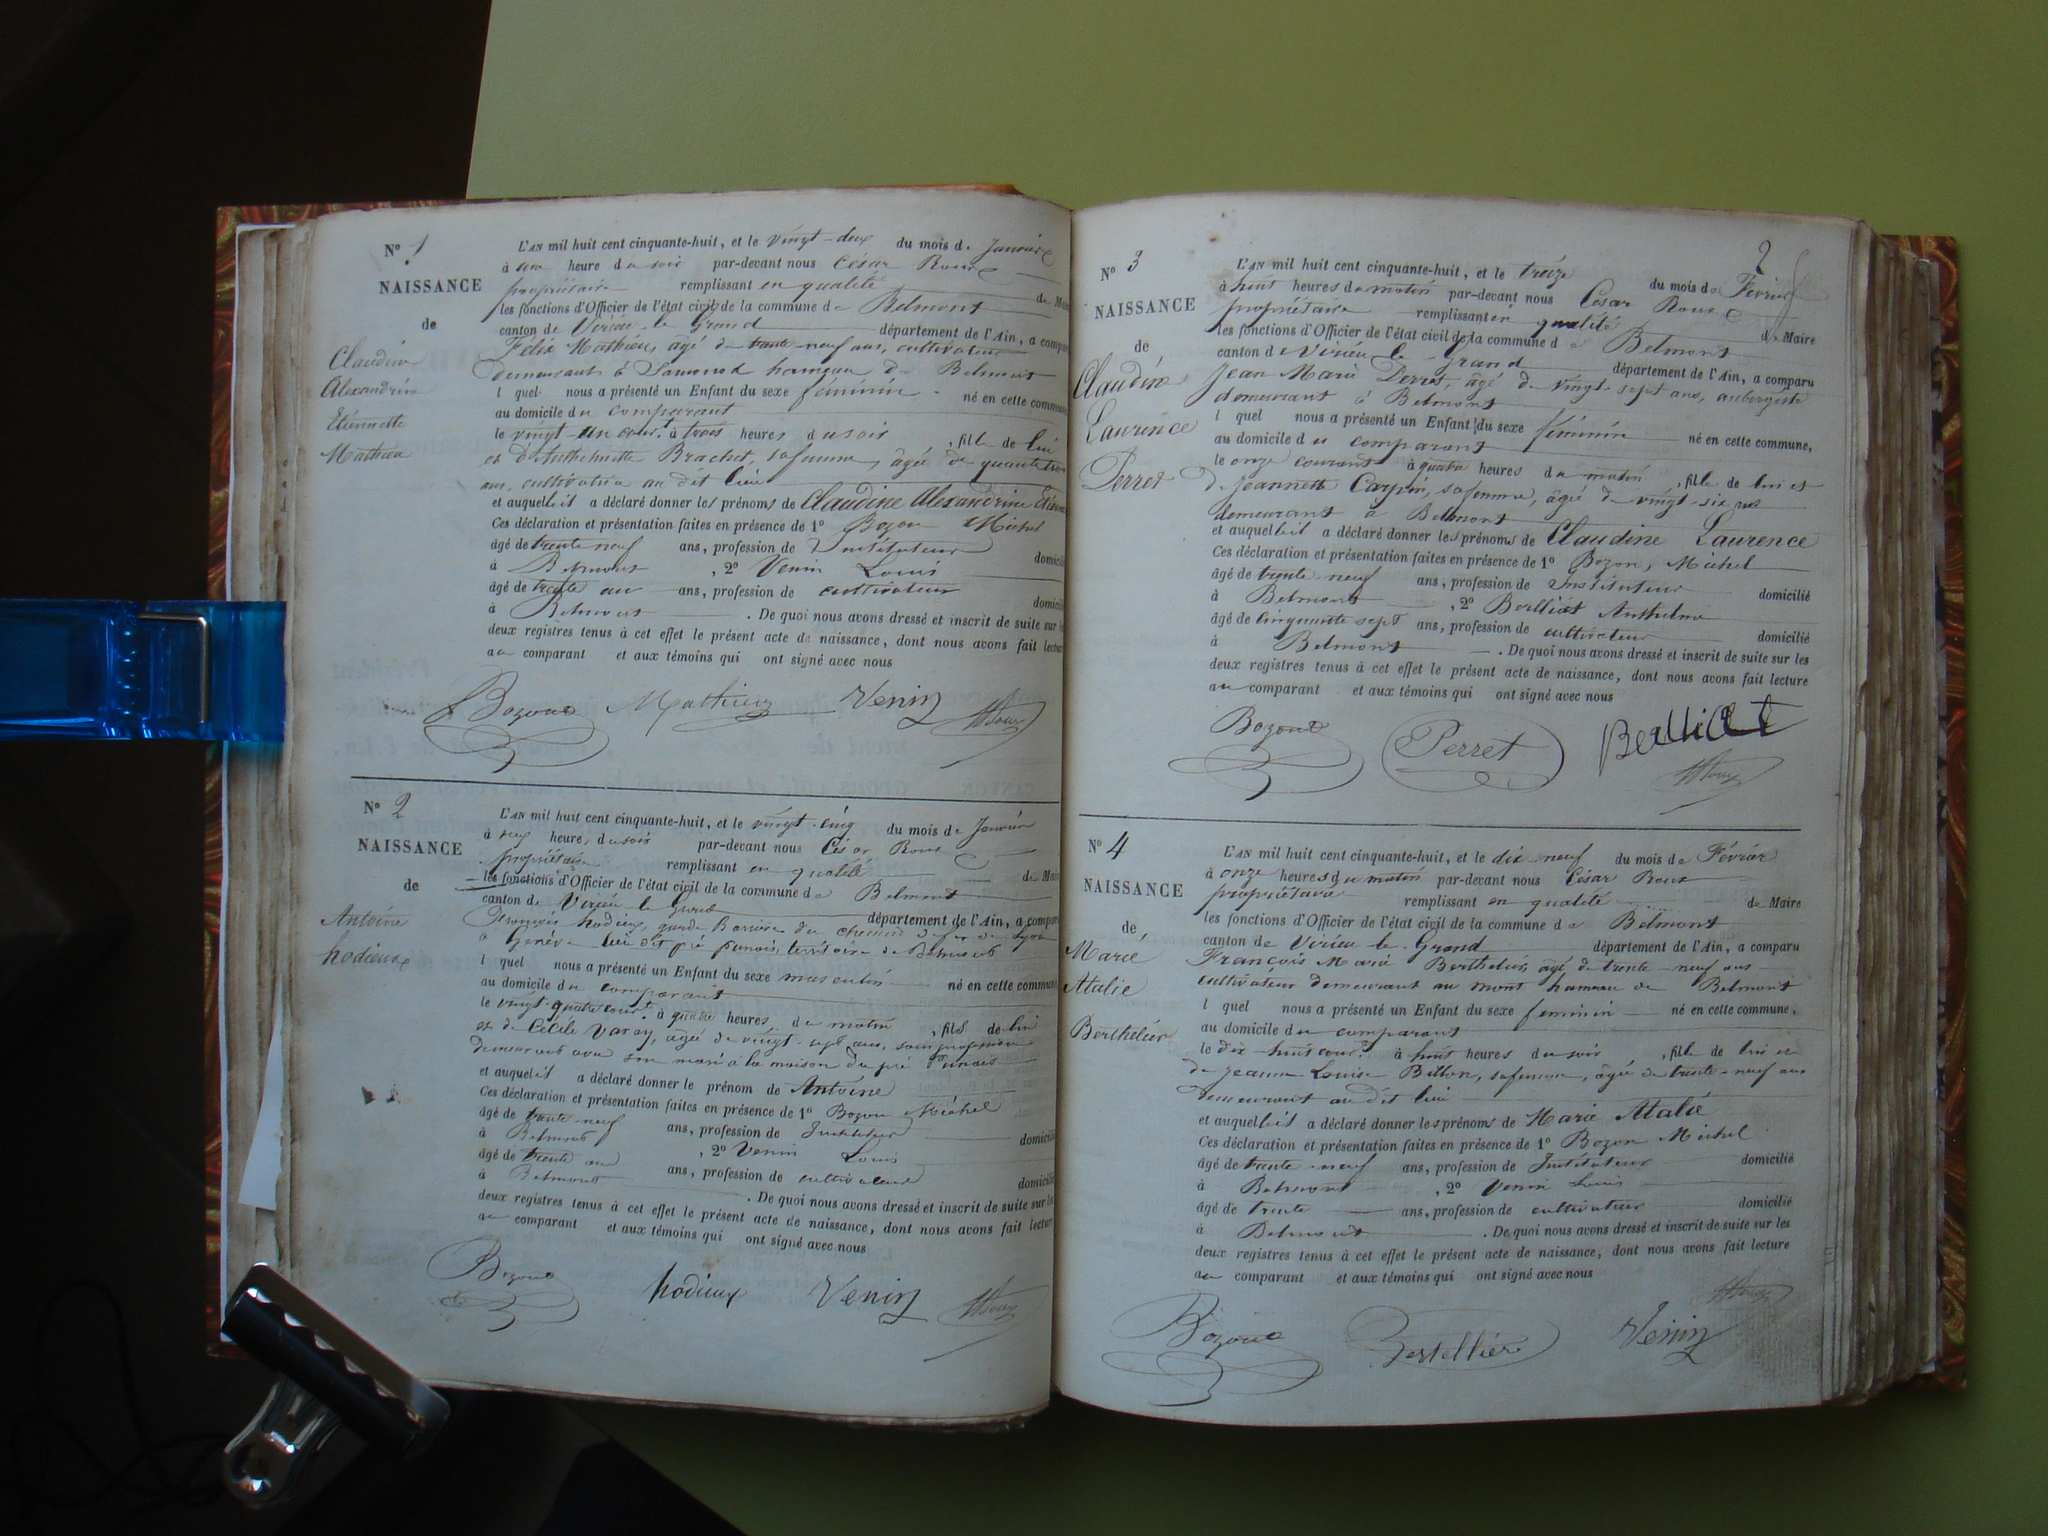 N° 1
NAISSANCE
de
Claudine
Alexandrine
Etiennette
Mathieu
L'AN mil huit cent cinquante-huit, et le vingt-deux du mois de Janvier
à une heure du soir par-devant nous César Roux
propriétaire remplissant en qualité de Maire
les fonctions d'Officier de l'état civil de la commune de Belmont
canton de Virieu-le-Grand département de l'Ain, a comparu
Félix Mathieu, âgé de trente-neuf ans, cultivateur
demeurant à hameau de Belmont
lquel nous a présenté un Enfant du sexe féminin né en cette commune
au domicile du comparant
le vingt-un cour.t à trois heures du soir, fille de lui
et d'Anthelmette Brachet, sa femme, âgée de
ans, cultivatrice au dit lieu
et auquel il a déclaré donner les prénoms de Claudine Alexandrine
Ces déclaration et présentation faites en présence de 1° Bozon Michel
âgé de trente neuf ans, profession de Instituteur domicilié
à Belmont, 2° Venin Louis
âgé de trente un ans, profession de cultivateur domicilié
à Belmont. De quoi nous avons dressé et inscrit de suite sur les
deux registres tenus à cet effet le présent acte de naissance, dont nous avons fait lecture
au comparant et aux témoins qui ont signé avec nous
Bozon Mathieu Venin
N° 2
NAISSANCE
de
Antoine
hodieux
L'AN mil huit cent cinquante-huit, et le vingt-cinq du mois de Janvier
à heure, du soir par-devant nous César Roux
propriétaire remplissant en qualité de Maire
les fonctions d'Officier de l'état civil de la commune de Belmont
canton de Virieu le Grand département de l'Ain, a comparu
François hodieux, garde Barrière du chemin de fer de Lyon
à Genève lieu dit pré punais, territoire de Belmont
lquel nous a présenté un Enfant du sexe masculin né en cette commune
au domicile du comparant
le vingt-quatre cour.t à quatre heures du matin, fils de lui
et de Cécile Varay, âgée de vingt-sept ans, sans profession
demeurant avec son mari à la maison du pré Punais
et auquel il a déclaré donner le prénom de Antoine
Ces déclaration et présentation faites en présence de 1° Bozon Michel
âgé de trente-neuf ans, profession de Instituteur domicilié
à Belmont, 2° Venin Louis
âgé de trente un ans, profession de cultivateur domicilié
à Belmont. De quoi nous avons dressé et inscrit de suite sur les
deux registres tenus à cet effet le présent acte de naissance, dont nous avons fait lecture
au comparant et aux témoins qui ont signé avec nous
Bozon hodieux Venin
2
N° 3
NAISSANCE
de
Claudine
Laurence
Perret
L'AN mil huit cent cinquante-huit, et le treize du mois de Février
à huit heures du matin par-devant nous César Roux
propriétaire remplissant en qualité de Maire
les fonctions d'Officier de l'état civil de la commune de Belmont
canton de Virieu le Grand département de l'Ain, a comparu
Jean Marie Perret, âgé de vingt-sept ans, aubergiste
demeurant à Belmont
lquel nous a présenté un Enfant du sexe féminin né en cette commune,
au domicile du comparant
le onze courant à quatre heures du matin, fille de lui et
de Jeannette Carpin, sa femme, âgée de vingt-six ans
demeurant à Belmont
et auquel il a déclaré donner les prénoms de Claudine Laurence
Ces déclaration et présentation faites en présence de 1° Bozon, Michel
âgé de trente neuf ans, profession de Instituteur domicilié
à Belmont, 2° Berlliat Anthelme
âgé de cinquante sept ans, profession de cultivateur domicilié
à Belmont. De quoi nous avons dressé et inscrit de suite sur les
deux registres tenus à cet effet le présent acte de naissance, dont nous avons fait lecture
au comparant et aux témoins qui ont signé avec nous
Bozon Perret Berlliat
N° 4
NAISSANCE
de
Marie
Atalie
Berthelier
L'AN mil huit cent cinquante-huit, et le dix-neuf du mois de Février
à onze heures du matin par-devant nous César Roux
propriétaire remplissant en qualité de Maire
les fonctions d'Officier de l'état civil de la commune de Belmont
canton de Virieu-le-Grand département de l'Ain, a comparu
François Marie Berthelier, âgé de trente-neuf ans
cultivateur demeurant au mont hameau de Belmont
lquel nous a présenté un Enfant du sexe féminin né en cette commune,
au domicile du comparant
le dix-huit cour.t à huit heures du soir, fille de lui et
de Jeanne Louise Billon, sa femme, âgée de trente-neuf ans
demeurant au dit lieu
et auquel il a déclaré donner les prénoms de Marie Atalie
Ces déclaration et présentation faites en présence de 1° Bozon Michel
âgé de trente-neuf ans, profession de Instituteur domicilié
à Belmont, 2° Venin Louis
âgé de trente ans, profession de cultivateur domicilié
à Belmont. De quoi nous avons dressé et inscrit de suite sur les
deux registres tenus à cet effet le présent acte de naissance, dont nous avons fait lecture
au comparant et aux témoins qui ont signé avec nous
Bozon Venin